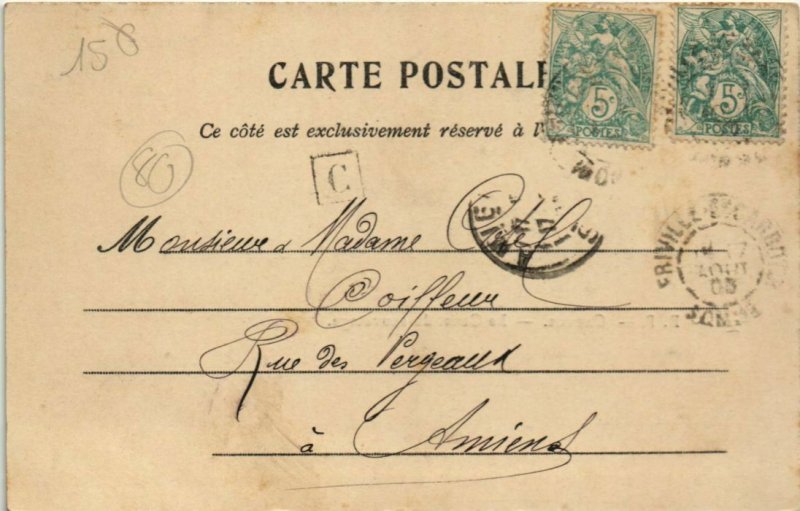 158
CARTE POSTALE
5c 5c
POSTES POSTES
Ce côté est exclusivement réservé à l'
80
C
Monsieur & Madame
Coiffeur
Rue des Vergeaux
à Amiens
AOUT
03
SOMME